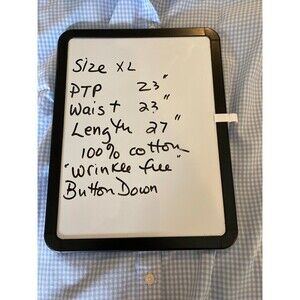 Size XL
PTP 23"
Waist 23"
Length 27"
100% cotton
"Wrinkle free"
Button Down